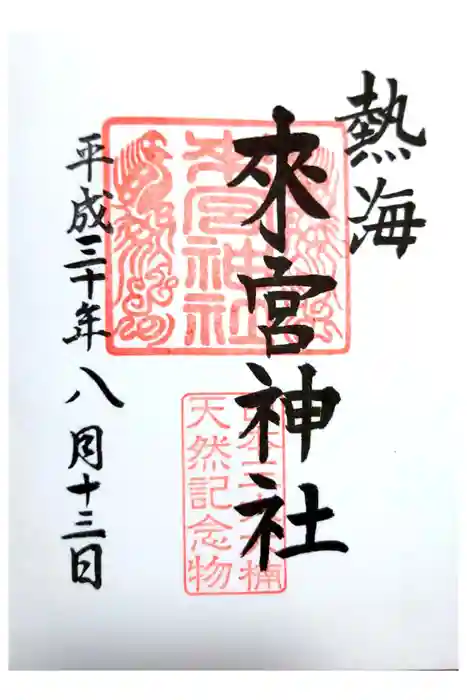 熱海
來宮神社
來宮神社
日本三大大楠
天然記念物
平成三十年八月十三日